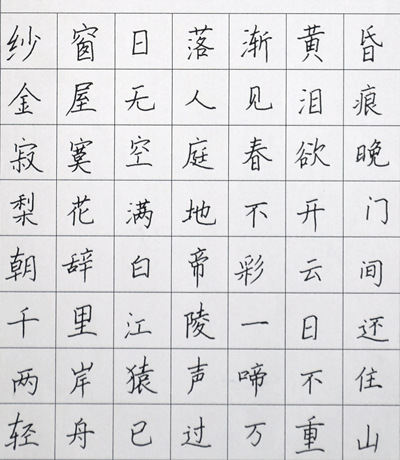 纱窗日落渐黄昏
金屋无人见泪痕
寂寞空庭春欲晚
梨花满地不开门
朝辞白帝彩云间
千里江陵一日还
两岸猿声啼不住
轻舟已过万重山